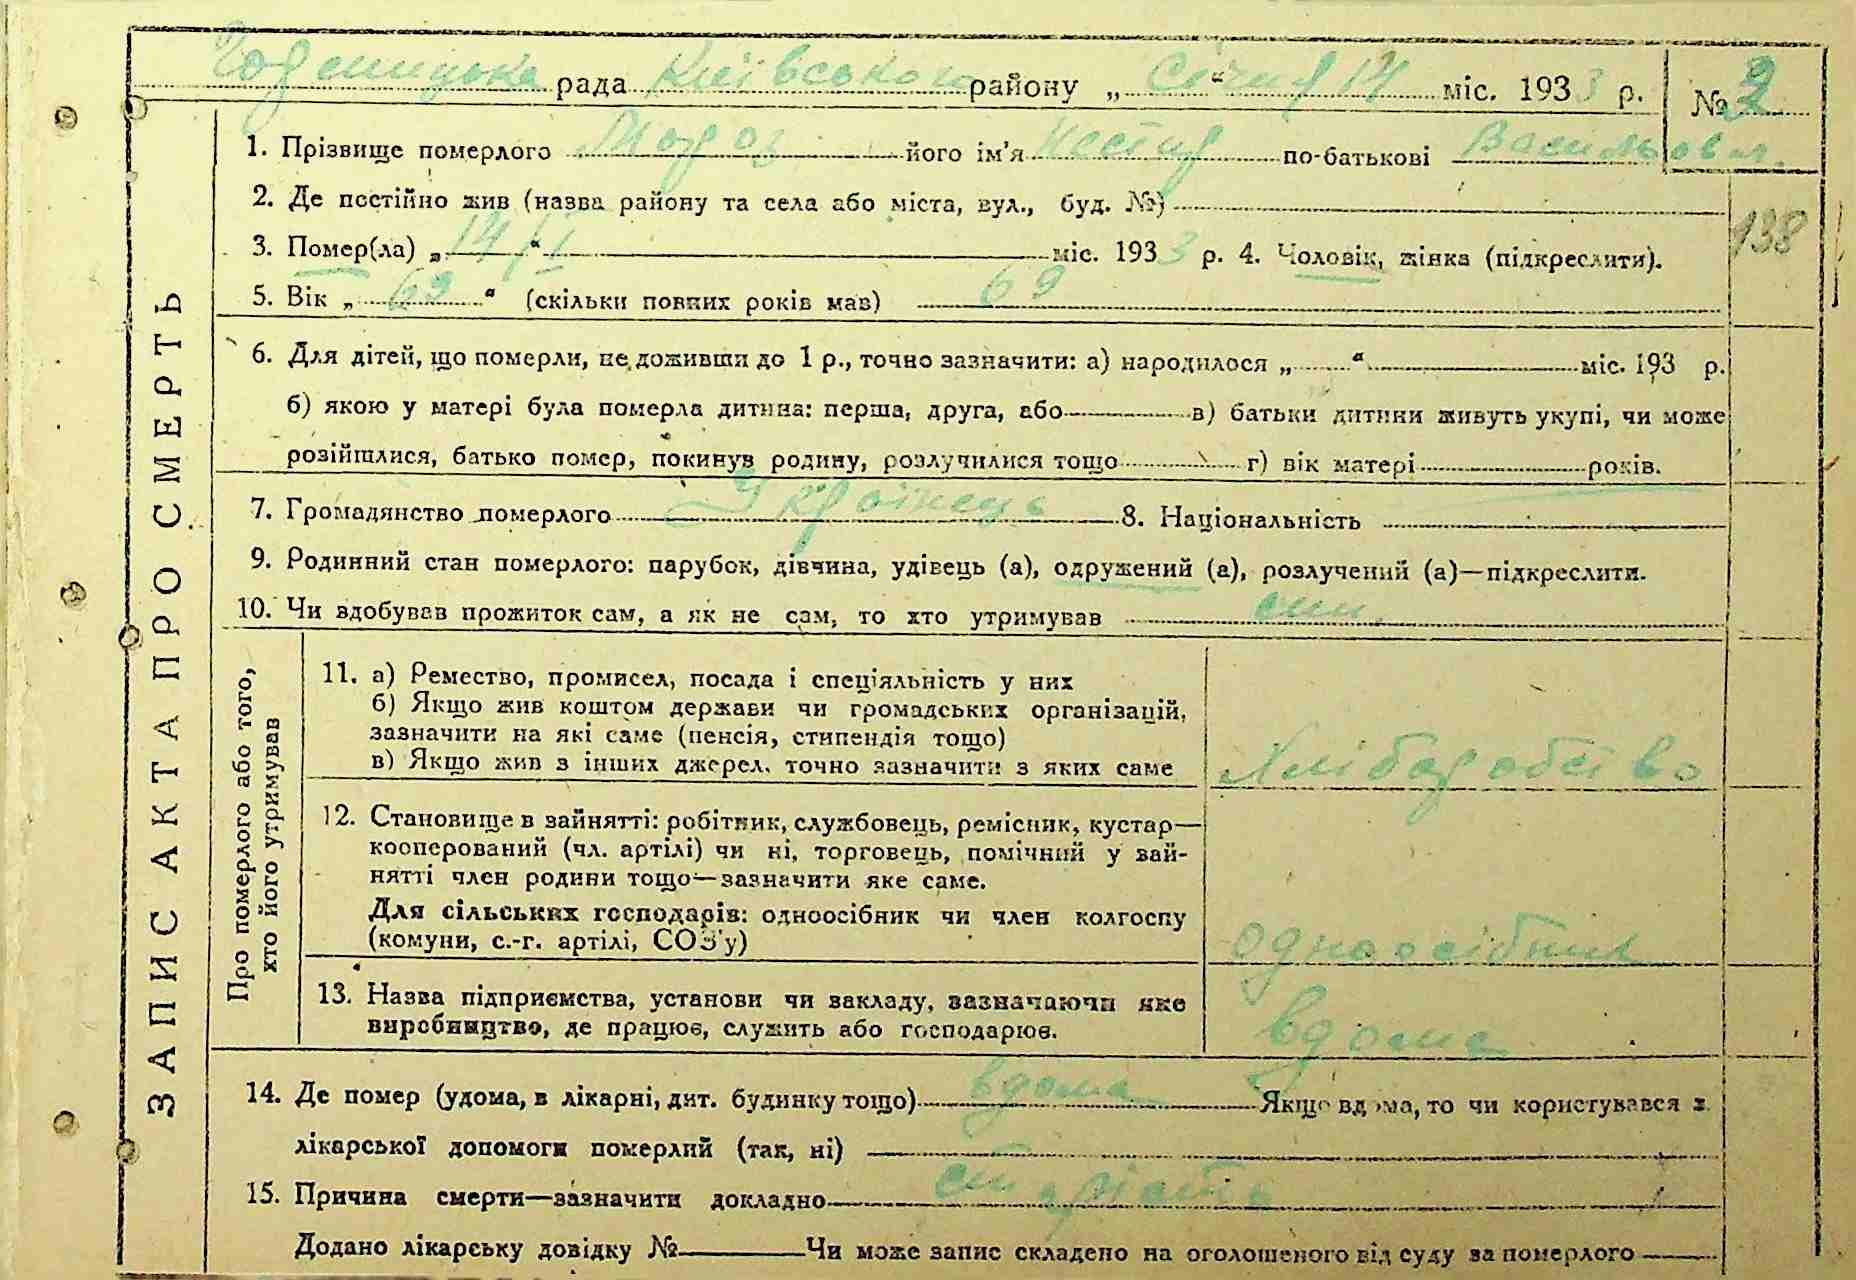 рада Київського району „ Січня 14 “ міс. 1933 р. № 2
1. Прізвище померлого Мороз його ім'я Нестір по-батькові Васильов.
2. Де постійно жив (назва району та села або міста, вул., буд. №)
138
3. Помер(ла) „ 14/I “ міс. 1933 р. 4. Чоловік, жінка (підкреслити).
5. Вік „ 69 “ (скільки повних років мав) 69
6. Для дітей, що померли, не доживши до 1 р., точно зазначити: а) народилося „ “ міс. 193 р.
б) якою у матері була померла дитина: перша, друга, або в) батьки дитини живуть укупі, чи може
розійшлися, батько помер, покинув родину, розлучилися тощо г) вік матері років.
7. Громадянство померлого Українець 8. Національність
9. Родинний стан померлого: парубок, дівчина, удівець (а), одружений (а), розлучений (а)—підкреслити.
10. Чи здобував прожиток сам, а як не сам, то хто утримував
ЗАПИС АКТА ПРО СМЕРТЬ
Про померлого або того,
хто його утримував
11. а) Ремество, промисел, посада і спеціяльність у них
б) Якщо жив коштом держави чи громадських організацій,
зазначити на які саме (пенсія, стипендія тощо)
в) Якщо жив з інших джерел, точно зазначити з яких саме
Хліборобство
12. Становище в зайнятті: робітник, службовець, ремісник, кустар—
кооперований (чл. артілі) чи ні, торговець, помічний у зай-
нятті член родини тощо—зазначити яке саме.
Для сільських господарів: одноосібник чи член колгоспу
(комуни, с.-г. артілі, СОЗ'у)
одноосібник
13. Назва підприємства, установи чи закладу, зазначаючи яке
виробництво, де працює, служить або господарює.
вдома
14. Де помер (удома, в лікарні, дит. будинку тощо) вдома Якщо вдома, то чи користувався з
лікарської допомоги померлий (так, ні)
15. Причина смерти—зазначити докладно старість
Додано лікарську довідку № Чи може запис складено на оголошеного від суду за померлого